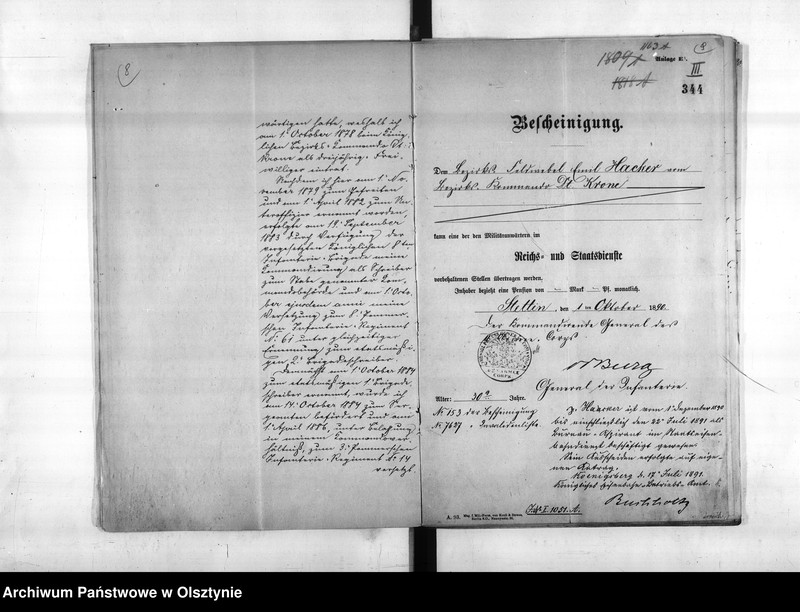 8
wärtigen hatte, weshalb ich
am 1. October 1878 beim König-
lichen Bezirks-Commando Dt.
Krone als dreijährig-Frei-
williger eintrat.
Nachdem ich hier am 1. No-
vember 1879 zum Gefreiten
und am 1. April 1882 zum Un-
teroffizier ernannt worden,
erfolgte am 14. September
1883 durch Verfügung der
vorgesetzten Königlichen 8ten
Infanterie-Brigade meine
Commandirung als Schreiber
zum Stabe genannter Com-
mandobehörde und am 1. Octo-
ber ejusdem anni meine
Versetzung zum 8. Pommer-
schen Infanterie-Regiment
No. 61 unter gleichzeitiger
Ernennung zum etatsmäßi-
gen 2. Brigadeschreiber.
Demnächst am 1. October 1884
zum etatsmäßigen 1. Brigade-
schreiber ernannt, wurde ich
am 14. October 1884 zum Ser-
geanten befördert und am
1. April 1886, unter Belassung
in meinem Commandover-
hältniß, zum 3. Pommerschen
Infanterie-Regiment No. 14
versetzt.
1103 A
Anlage E.
III
344
Bescheinigung.
Dem Bezirks Feldwebel Emil Hacker vom
Bezirks-Kommando Dt. Krone
kann eine der den Militäranwärtern im
Reichs- und Staatsdienste
vorbehaltenen Stellen übertragen werden.
Inhaber bezieht eine Pension von — Mark — Pf. monatlich.
Stettin, den 1ten Oktober 1890.
Der Kommandirende General des
Corps
v Burg
General der Infanterie.
Alter: 30 2/ Jahre.
No. 153 der Bescheinigung
No. 7647 " Invalidenliste.
p. Haecker ist vom 1. Dezember 1890
bis einschließlich den 22. Juli 1891 als
Büreau-Aspirant im Staatseisen-
bahndienst beschäftigt gewesen.
Sein Ausscheiden erfolgte auf eige-
nen Antrag.
Koenigsberg d. 17. Juli 1891.
Königliches Eisenbahn-Betriebs-Amt.
Buchholtz
I. 1051. A.
Archiwum Państwowe w Olsztynie